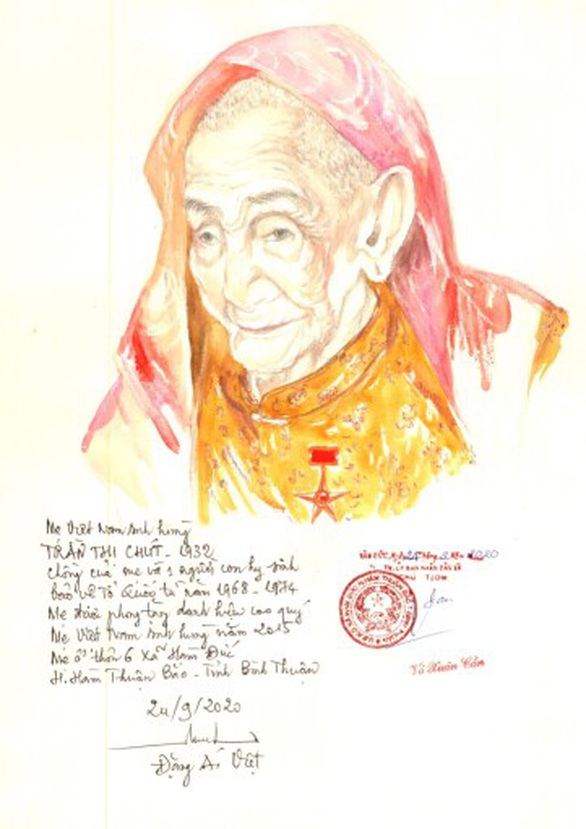 Mẹ Việt Nam anh hùng
TRẦN THỊ CHÚT - 1932
chồng của mẹ và 2 người con hy sinh
Bảo vệ Tổ Quốc từ năm 1968 - 1974
Mẹ được phong tặng danh hiệu cao quý
Mẹ Việt Nam anh hùng năm 2015
Mẹ ở thôn 6 Xã Hàm Đức
H. Hàm Thuận Bắc - Tỉnh Bình Thuận
24/9/2020
Đặng Ái Việt
HÀM ĐỨC, Ngày 25 tháng 9 năm 2020
TM. ỦY BAN NHÂN DÂN XÃ
Võ Xuân Cẩn